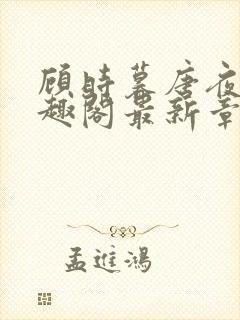 顾时暮唐夜
趣阁最新章
孟進鴻